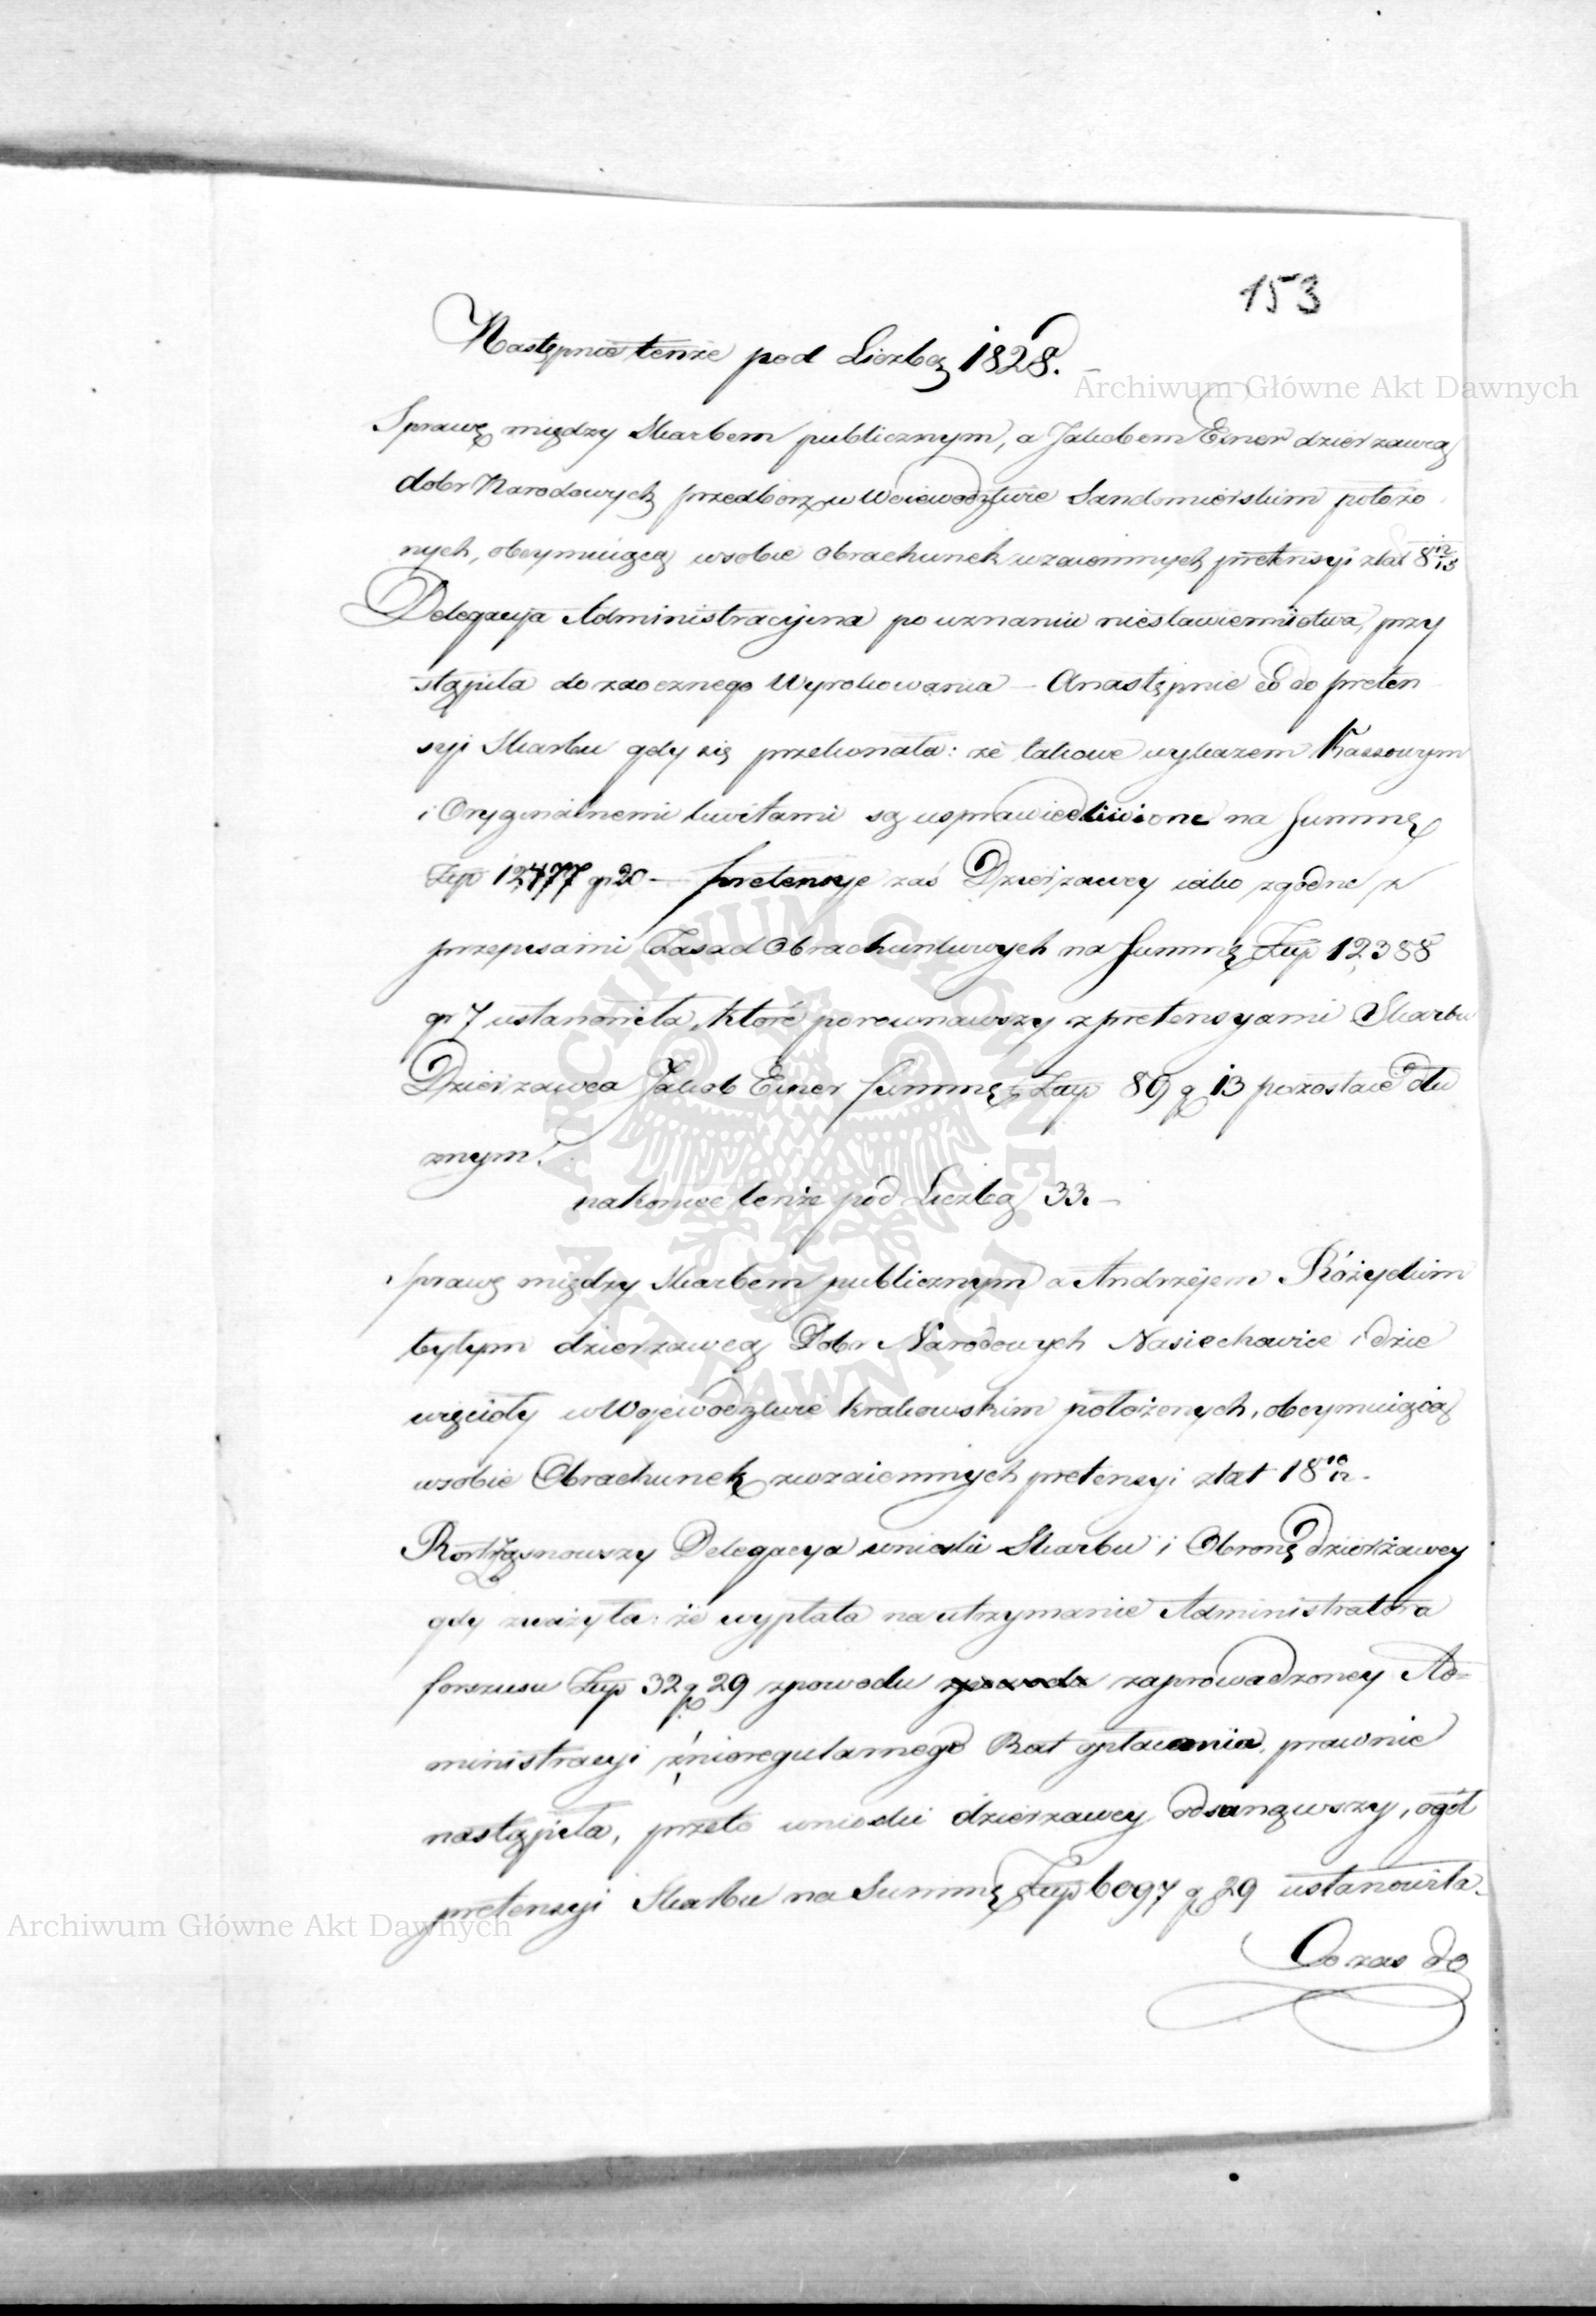 153
Następnie tenże pod Liczbą 1828. –
Archiwum Główne Akt Dawnych
Sprawę między Skarbem publicznym, a Jakobem Exner dzierzawcą
dobr Narodowych Przedborz w Woiewodztwie Sandomierskim położo
nych, obeymuiącą wsobie Obrachunek wzaiemnych pretensyi zlat 8 12/13
Delegacyja Administracyjna po uznaniu niestawiennictwa, przy
stąpiła do zaocznego Wyrokowania – Anastępnie co do preten
syi Skarbu gdy się przekonała: że takowe wykazem Kassowym
i Oryginalnemi kwitami są usprawiedliwione na Summę
Złp 12477 gr 20 – pretensye zaś Dzierzawcy iako zgodne z
przepisami Zasad Obrachunkowych na Summę Złp 12388
gr 7 ustanowiła, które porownawszy z pretensyami Skarbu
Dzierzawca Jakob Exner Summę Złp 89 g 13 pozostaie dłu
żnym.
nakoniec tenże pod Liczbą 33. –
Sprawę między Skarbem publicznym a Andrzejem Różyckim
byłym dzierzawcą Dobr Narodowych Nasiechowice i dzie
więcioły w Wojewodztwie krakowskim położonych, obeymuiącą
wsobie Obrachunek wzaiemnych pretensyi zlat 18 10/12 -
Roztrząsnowszy Delegacya wnioski Skarbu i Obronę dzierżawcy
gdy zważyła: że wypłata na utrzymanie Administratora
forszusu Złp 32 g 29 zpowodu zpowodu zaprowadzoney Ad=
ministracyi z nieregularnego Rat opłacania, prawnie
nastąpiła, przeto wnioski dzierzawcy odsunąwszy, ogół
pretensyi Skarbu na Summę Złp 6097 g 29 ustanowiła.
Archiwum Główne Akt Dawnych
Co zas do
ARCHIWUM GŁÓWNE AKT DAWNYCH